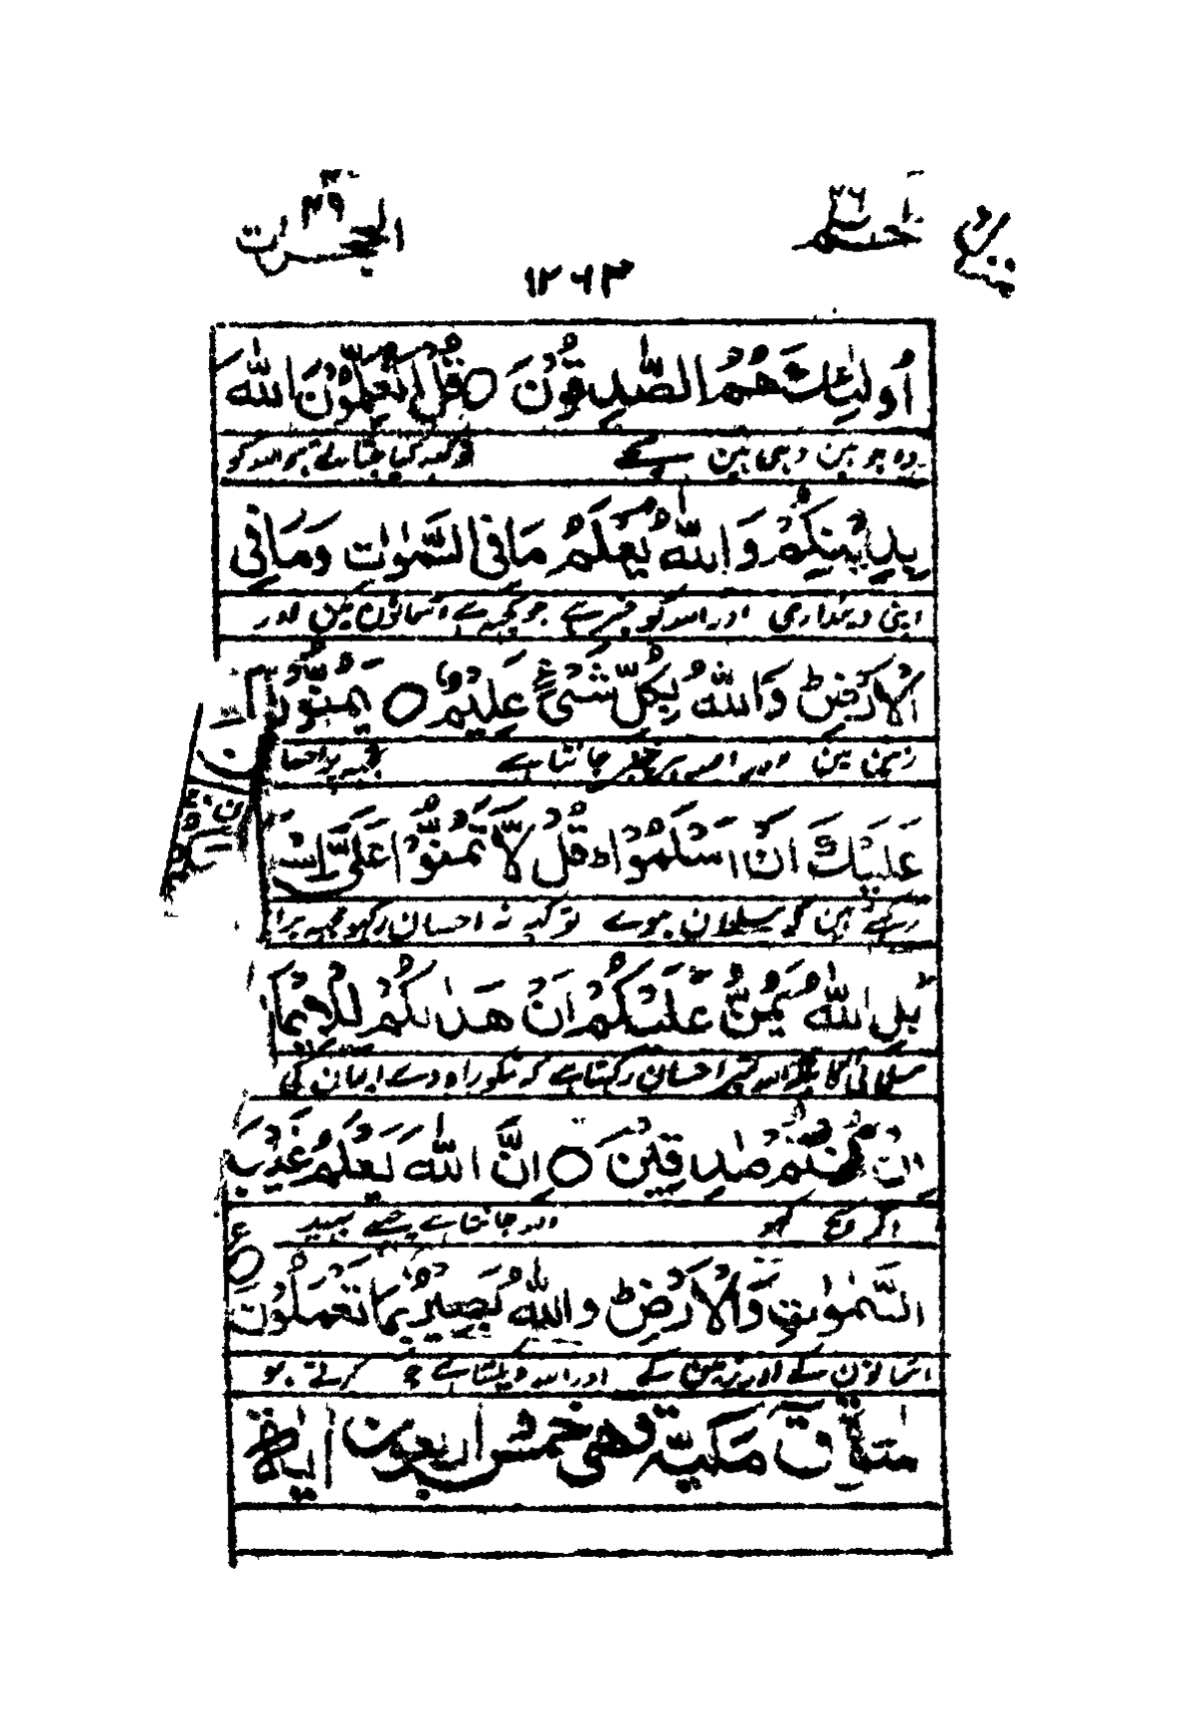 حٰسم ٢٦
الحجرات ٤٩
١٢٦٣
أُولٰئِكَ هُمُ الصّٰدِقُوْنَ ○ قُلْ اَتُعَلِّمُوْنَ اللّٰهَ
وہ جو ہین وہی ہین سچے تو کہہ کیا جتاتے ہو اللہ کو
بِدِيْنِكُمْ وَاللّٰهُ يَعْلَمُ مَا فِى السَّمٰوٰتِ وَمَا فِى
اپنی دینداری اور اللہ کو خبر ہے جو کچھ ہے آسمانوں مین اور
الْاَرْضِ ط وَاللّٰهُ بِكُلِّ شَىْءٍ عَلِيْمٌ ○ يَمُنُّوْنَ
زمین مین اور اللہ ہر چیز جانتا ہے تجھ پر احسا
عَلَيْكَ اَنْ اَسْلَمُوْا ط قُلْ لَّا تَمُنُّوْا عَلَىَّ اِسْ
رکھتے ہین کہ مسلمان ہوے تو کہہ نہ احسان رکھو مجھ پر ا
بَلِ اللّٰهُ يَمُنُّ عَلَيْكُمْ اَنْ هَدٰىكُمْ لِلْاِيْمَا
مسلمانی کا بلکہ اللہ تمپر احسان رکھتا ہے کہ تمکو راہ دے ایمان کی
اِنْ كُنْتُمْ صٰدِقِيْنَ ○ اِنَّ اللّٰهَ يَعْلَمُ غَيْبَ
اگر سچ کہو اللہ جانتا ہے چھپے بھید
السَّمٰوٰتِ وَالْاَرْضِ ط وَاللّٰهُ بَصِيْرٌ بِمَا تَعْمَلُوْنَ ○ ع
آسمانوں کے اور زمین کے اور اللہ دیکھتا ہے جو کرتے ہو
قٓ مَكِّيَّة وَهِىَ خمسٌ اربعون اٰيَة